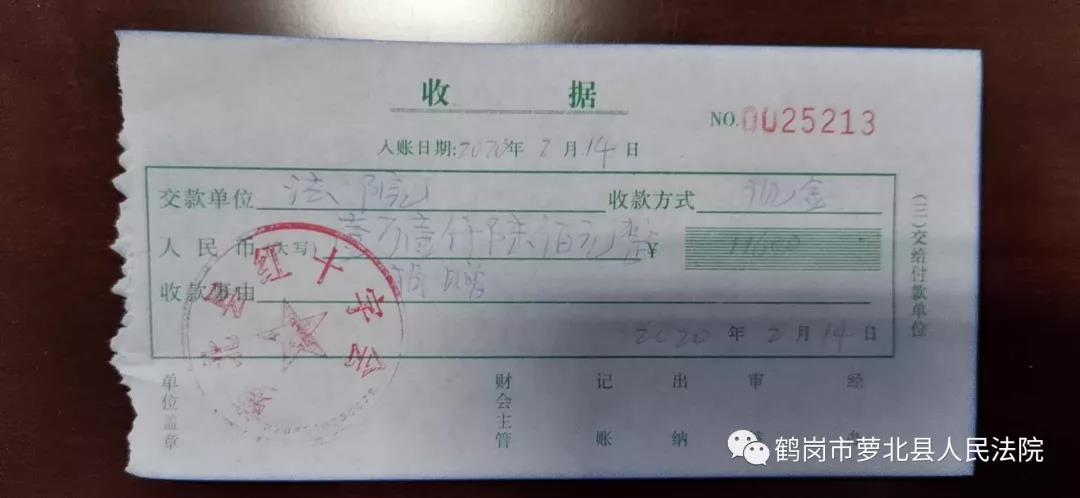 收 据
NO.0025213
入账日期:2020年 2 月 14 日
交款单位 法院 收款方式 现金
人民币(大写) 壹万壹仟陆佰元整 ¥ 11600
收款事由 捐赠
2020 年 2 月 14 日
(三)交给付款单位
萝北县红十字会
单位盖章 财会主管 记账 出纳 审 经
鹤岗市萝北县人民法院